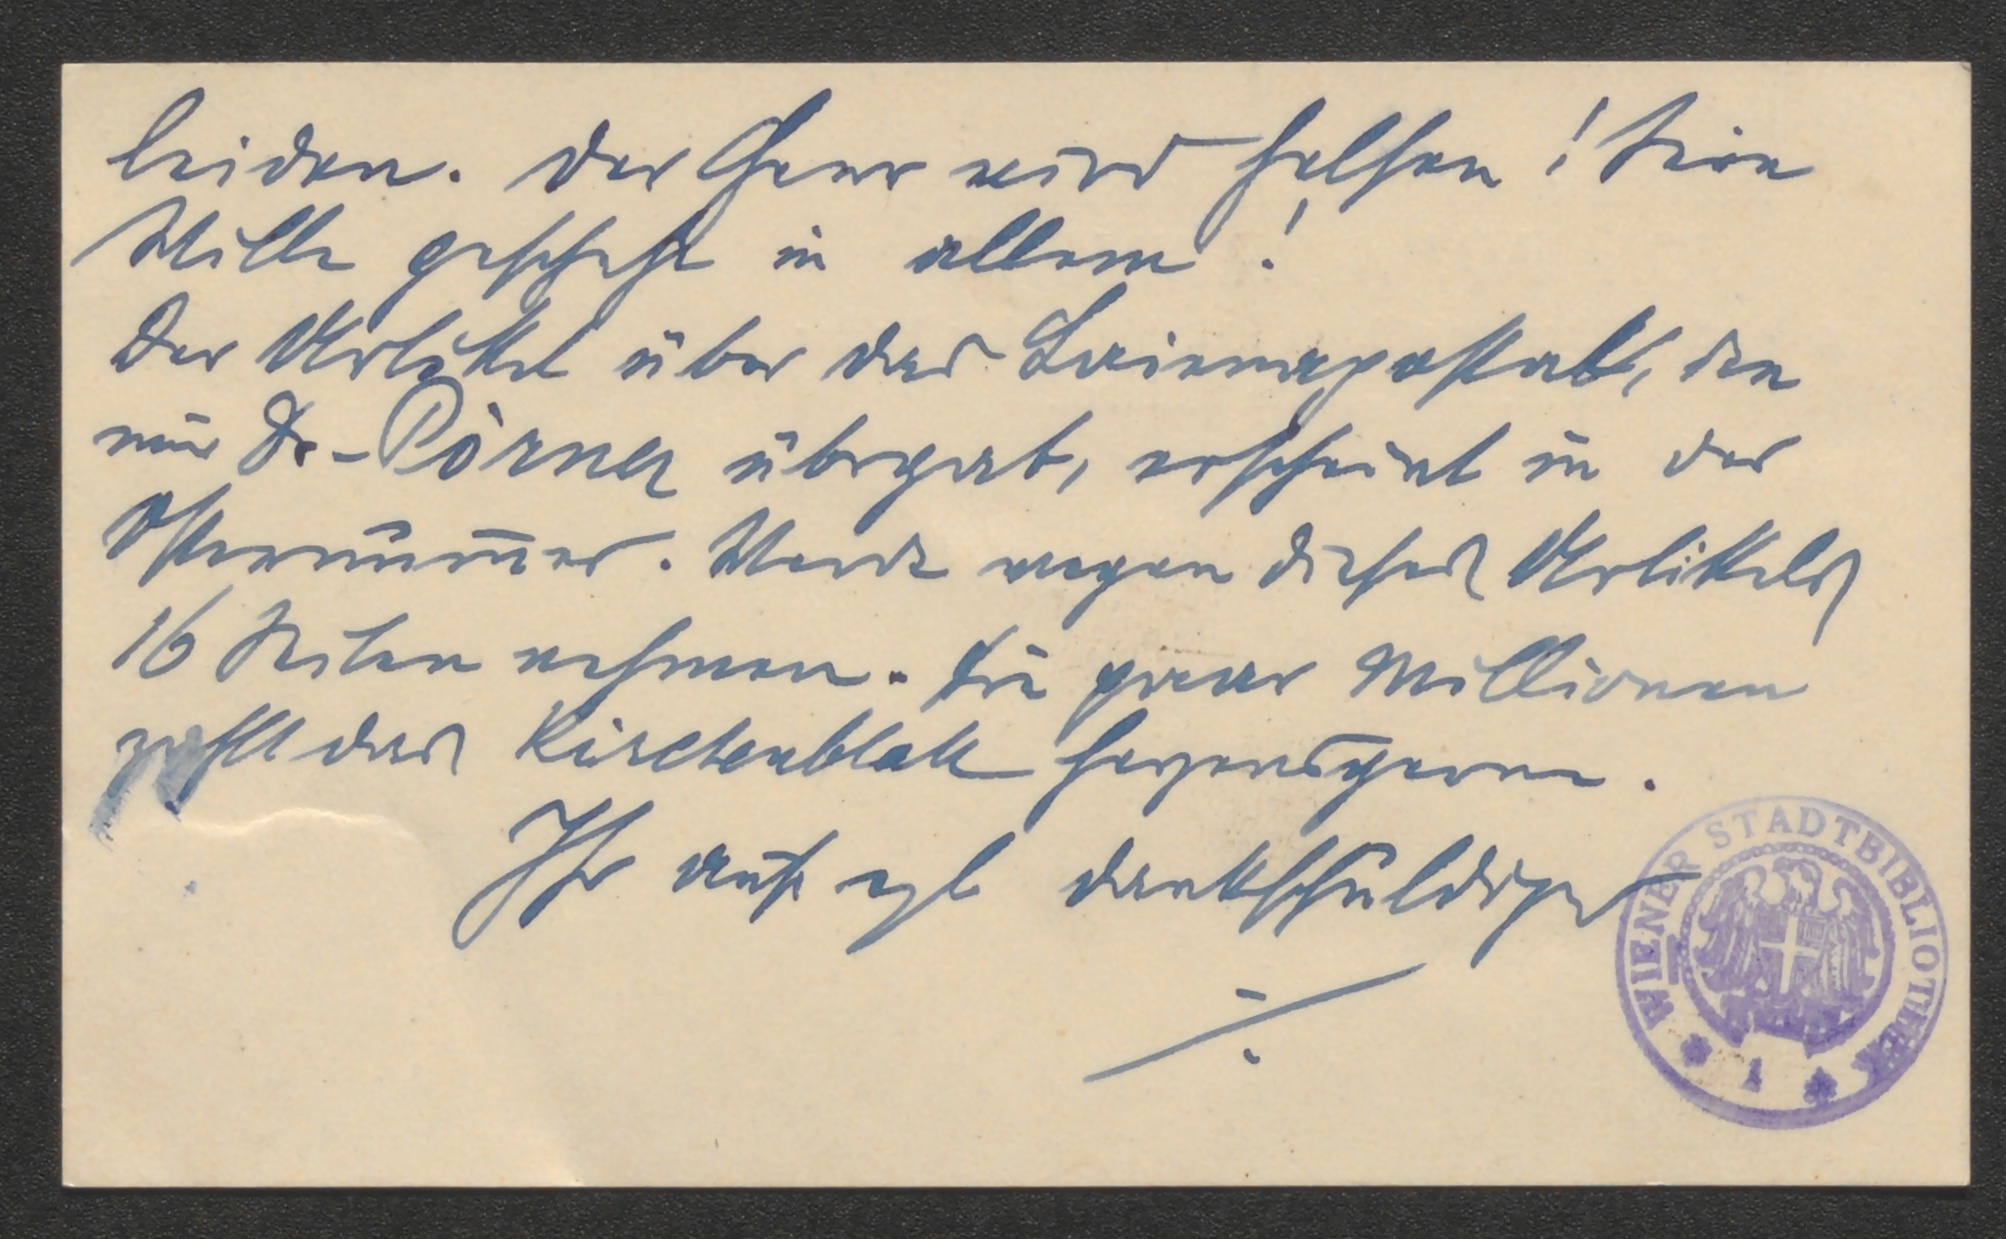 leiden. Der Herr wird helfen! Sein
Wille geschehe in allem!
Der Artikel über das Laienapostolat, den
mir Dr. Pörner übergab, erscheint in der
Osternummer. Werde wegen dieses Artikels
16 Seiten nehmen. Die paar Millionen
zahlt das Kirchenblatt herzensgerne.
Ihr aufr. erg. dankschuldiger
WIENER STADTBIBLIOTHEK
* 1 *